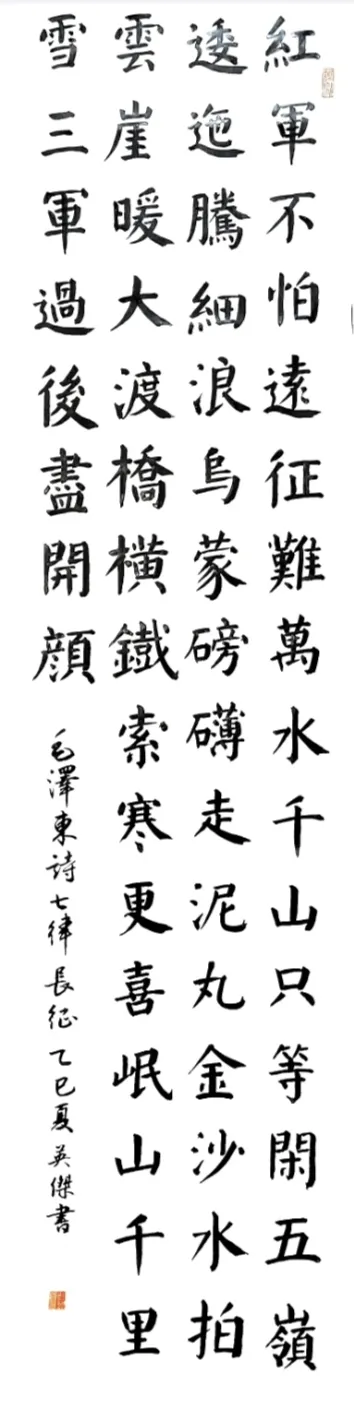 紅軍不怕遠征難萬水千山只等閑五嶺
逶迤騰細浪烏蒙磅礴走泥丸金沙水拍
雲崖暖大渡橋橫鐵索寒更喜岷山千里
雪三軍過後盡開顔
毛澤東詩七律長征乙巳夏英傑書